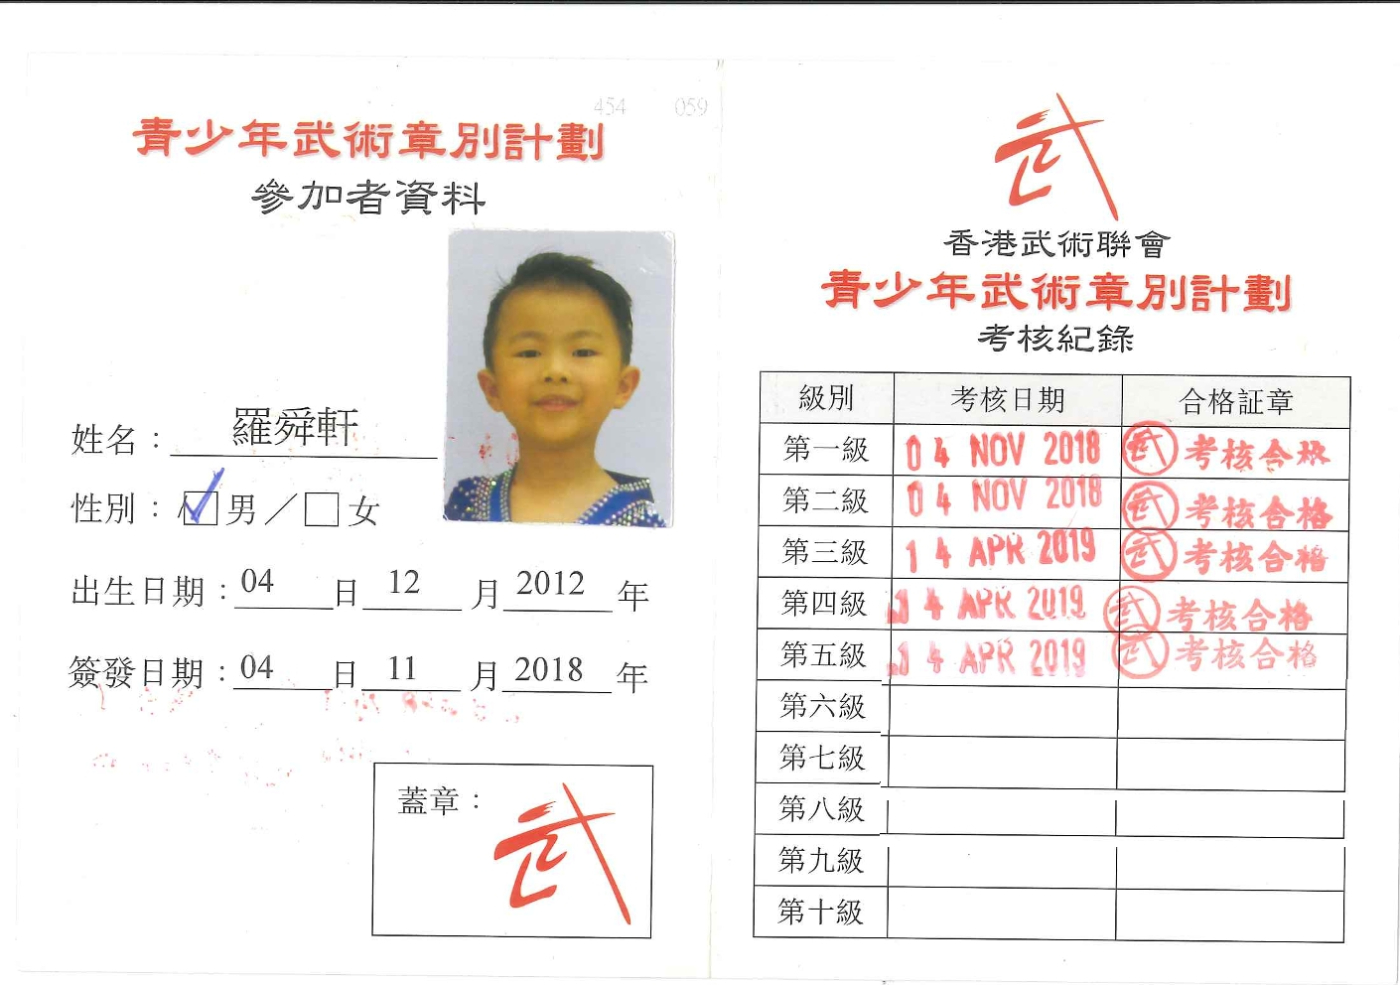 454 059
青少年武術章別計劃
參加者資料
姓名：羅舜軒
性別：☑男／☐女
出生日期：04日12月2012年
簽發日期：04日11月2018年
蓋章：
武
武
香港武術聯會
青少年武術章別計劃
考核紀錄
級別 考核日期 合格証章
第一級 04 NOV 2018 武 考核合格
第二級 04 NOV 2018 武 考核合格
第三級 14 APR 2019 武 考核合格
第四級 14 APR 2019 武 考核合格
第五級 14 APR 2019 武 考核合格
第六級
第七級
第八級
第九級
第十級